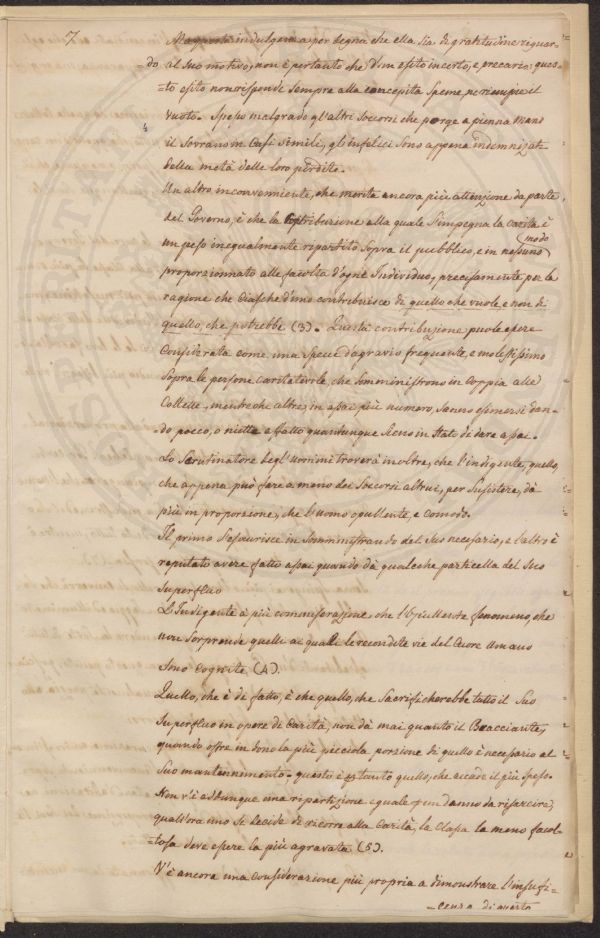 7
indulgenza per degna che ella sia di gratitudine riguar=
=do al suo motivo, non è pertanto che d'un esito incerto, e precario: ques=
=to esito non risponde sempre alla concepita speme, ne riempie il
vuoto. Spesso malgrado gl'altri Soccorsi che porge a pienna mano
il Sovrano in Casi simili, gl'infelici sono appena indemnizati
della metà delle loro perdite.
Un altro inconvenniente, che merita ancora più attenzione da parte
del Governo, è che la Contribuzione alla quale s'impegna la Carità è
un peso inegualmente ripartito sopra il pubblico, e in nessuno modo
proporzionnato alle facoltà d'ogni Individuo, precisamente per la
ragione che Ciasched'uno contribuisce di quello che vuole e non di
quello, che potrebbe (3). Questa contribuzione puole essere
Considerata come una specie d'agravio frequente, e molestissimo
sopra le persone caritatevole, che somministrono in Coppia alle
Collette, mentre che altre, in assai più numero, sanno esimersi dan=
do pocco, o niette a fatto quantunque sieno in stato di dare assai.
Lo Scrutinatore degl'uommini troverà inoltre, che l'indigente, quello,
che appena può fare a meno dei Soccorsi altrui, per Susistere, dà
più in proporzione, che l'uomo opullente, e Comodo.
Il primo s'esaurisce in somministrando del suo necesario, e l'altro è
reputato avere fatto assai quando dà qualche particella del suo
superfluo
L'Indigente à più commiserazione, che l'Opullente fenomeno, che
non sorprende quelli ai quali le recondite vie del Cuore Umano
sono Cognite (4).
Quello, che è di fatto, è che quello, che sacrificherebbe tutto il suo
superfluo in opere di Carità, non dà mai quanto il Bracciante,
quando offre in dono la più picciola porzione di quello è necessario al
suo mantennimento; questo è pertanto quello, che accade il più spesso.
Non v'è addunque una ripartizione eguale d'un danno da risarcire,
qualvora uno si decide di ricorre alla Carità, la Classa la meno facol=
=tosa deve essere la più agravata (5).
V'è ancora una Considerazione più propria a dimonstrare l'insufi=
=cenza di questo